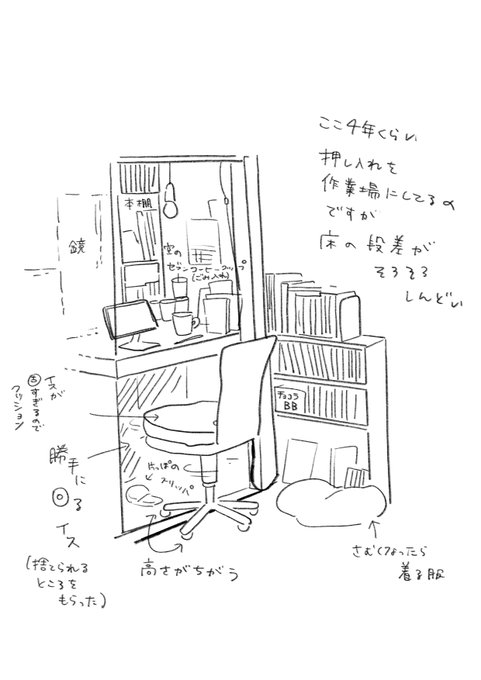 ここ4年くらい
押し入れを
作業場にしてるの
ですが
床の段差が
そろそろ
しんどい
本棚
鏡
空の
セブンコーヒーカップ
(ごみ入れ)
イスが
古すぎるので
クッション
チョコラ
BB
勝手に
回る
イス
(捨てられる
ところを
もらった)
片っぽの
スリッパ
高さがちがう
さむくなったら
着る服